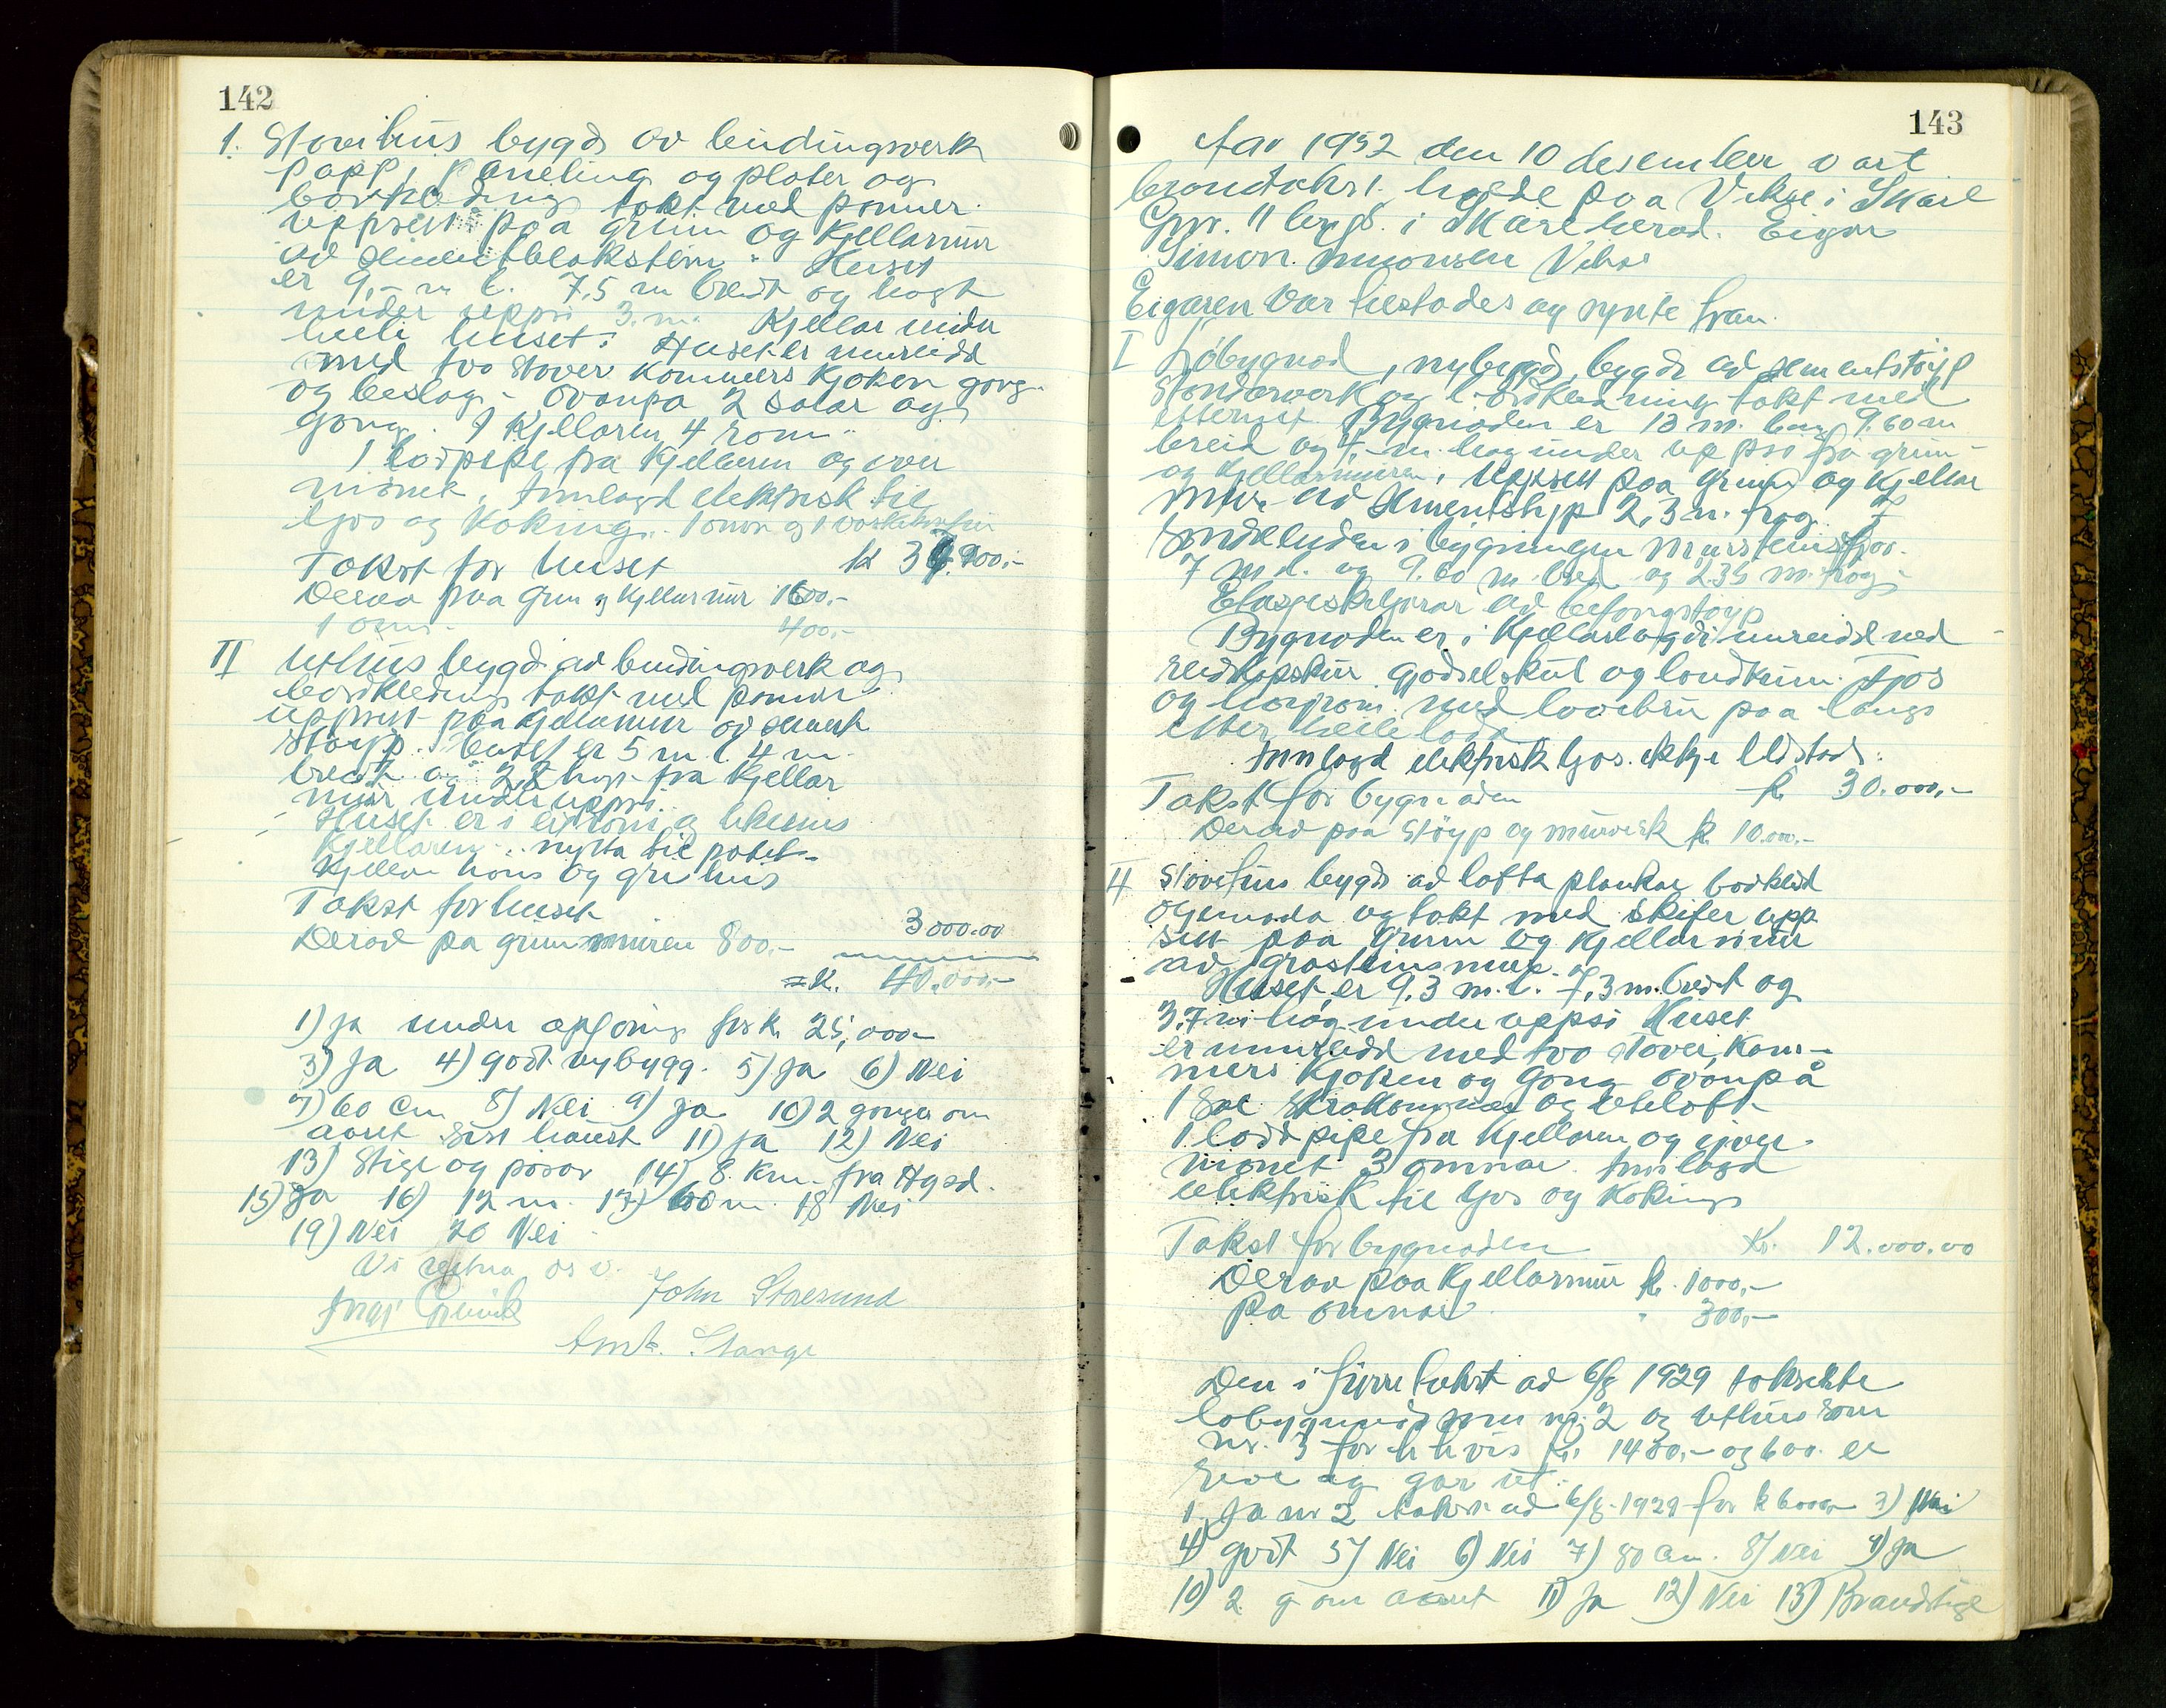 142
1. Stovehus bygd av bindingsverk
papp, paneling og plater og
bordkledning tekt med panner
uppsett paa grunn og Kjellarmur
ad sementblokstein. Huset
er 9,- m l. 7,5 m breidt og hogt
under uppsi 3. m. Kjellar under
heile huset. Huset er innreidd
med tvo stover Kammers Kjøken gong
og beslag - Ovanpa 2 salar og
gong. I Kjellaren 4 rom
1 lodpipe fra Kjellaren og over
mønet. Innlagd elektrisk til
ljos og Koking. 1 omn og 1
Takst for huset kr 36.900.-
Derav paa Grun og Kjellarmur 1600,-
1 omn - 400,-
II Uthus bygd ad bindingsverk og
bordkleding tekt med panner
uppsett paa Kjellarmur ad sement
støyp. Huset er 5 m l 4 m
breidt og 2,2 hogt fra Kjellar
mur under uppsi.
Huset er i eit rom og
Kjellaren nytta til potet-
Kjellar hons og gris hus
Takst for huset 3000.00
Derad pa grunnmuren 800.-
= K. 40.000.-
1) Ja under opføring for k. 25,000-
3) Ja 4) godt nybygg. 5) Ja 6) Nei
7) 60 Cm 8) Nei 9) Ja 10) 2 gonger om
aaret sist haust 11) Ja 12) Nei
13) Stige og 14) 8. km. fra Hgsd.
15) Ja 16) 12 m. 17) 60 m. 18 Nei
19) Nei 20 Nei
Vi os v.
John Staresund
Stange
143
Aar 1952 den 10 desember vart
brandtakst helde paa Vikse i Skare
Gnr. 11 i Skare herad. Eigar
Simon Simonsen Vikse
Eigaren var tilstades og synte fram.
I Løbygnad, nybygd, bygd ad sementstøyp
Stenderverk og bordkledning tekt med
eternit. Bygnaden er 13 m. lang 9.60 m
breid og 4,- m. høg under uppsi frå grunn-
og Kjellarmuren, Uppsett paa Grunn og Kjellar
mur ad Sementstøyp 2,3 m. høg. I
i bygningen
7 m l. og 9.60 m. bred og 2.35 m. høg.
Etasjeskiljerar ad betongstøyp
Bygnaden er i Kjellarhøgdi innreidd med
reidskapskur gjødselskut og landkum. Fjos
og høyrom med løebru paa langs
etter heile løda
Innlagd elektrisk ljos. ikkje Ildstad.
Takst for bygnaden k. 30.000,-
Derad paa støyp og murverk k. 10.000.-
II Stovehus bygd ad lafta plankar bordkled
og tekt med skifer upp
sett paa Grunn og Kjellarmur
ad grasteinsmur.
Huset er 9.3 m. l. 7,3 m. breidt og
3,7 m høg under uppsi Huset
er innreidd med tvo stover, Kam-
mers Kjøken og Gong ovanpå
1 Sal Skrakammer og uteloft
1 lodd pipe fra Kjellaren og yver
mønet 3 omnar. Innlagd
elektrisk til ljos og Koking
Takst for bygnaden Kr. 12.000.00
Derav paa Kjellarmur k. 1000,-
Pa omnar " 300,-
Den i fyrre takst ad 6/8 1929 taksette
løbygnad som nr. 2 og uthus som
nr. 3 for h hvis kr. 1400,- og 600. er
reve og gar ut.
1. Ja nr 2 takst ad 6/8-1929 for k 6000 3) Nei
4) godt 5) Nei 6) Nei 7) 80 Cm. 8) Nei 9) Ja
10) 2 g om aaret 11) Ja 12) Nei 13) Brandstige